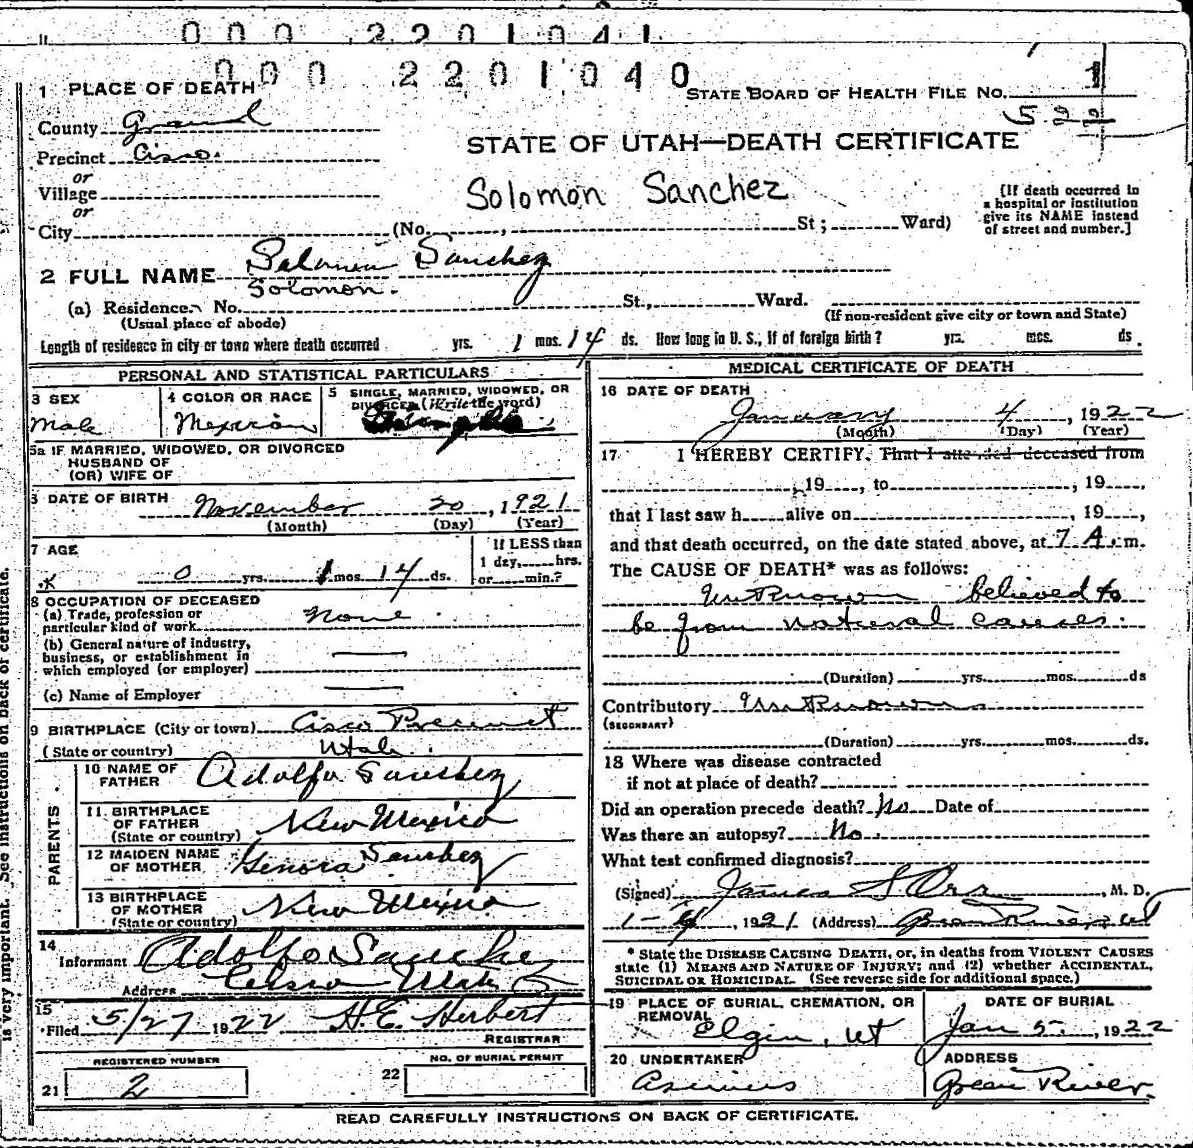 0 0 0 2 2 0 1 0 4 1
0 0 0 2 2 0 1 0 4 0
1 PLACE OF DEATH
STATE BOARD OF HEALTH FILE NO. 1
522
County Grand
STATE OF UTAH—DEATH CERTIFICATE
Precinct Cisco.
or
Village
Solomon Sanchez
[If death occurred in
a hospital or institution
give its NAME instead
of street and number.]
or
City (No. , St; Ward)
2 FULL NAME Solomon Sanchez
Solomon.
(a) Residence. No. St., Ward.
(Usual place of abode) (If non-resident give city or town and State)
Length of residence in city or town where death occurred yrs. 1 mos. 14 ds. How long in U. S., if of foreign birth? yrs. mos. ds.
PERSONAL AND STATISTICAL PARTICULARS
3 SEX
Male
4 COLOR OR RACE
Mexican
5 SINGLE, MARRIED, WIDOWED, OR
DIVORCED (Write the word)
5a IF MARRIED, WIDOWED, OR DIVORCED
HUSBAND OF
(OR) WIFE OF
6 DATE OF BIRTH
November 20, 1921
(Month) (Day) (Year)
7 AGE
0 yrs. 1 mos. 14 ds.
If LESS than
1 day, hrs.
or min.?
8 OCCUPATION OF DECEASED
(a) Trade, profession or
particular kind of work None.
(b) General nature of industry,
business, or establishment in
which employed (or employer)
(c) Name of Employer
9 BIRTHPLACE (City or town) Cisco Precinct
(State or country) Utah.
PARENTS
10 NAME OF
FATHER Adolfo Sanchez
11 BIRTHPLACE
OF FATHER New Mexico
(State or country)
12 MAIDEN NAME
OF MOTHER Genora Sanchez
13 BIRTHPLACE
OF MOTHER New Mexico
(State or country)
14
Informant Adolfo Sanchez
Address Cisco Utah
15
Filed 5/27 1922 H. E. Herbert
REGISTRAR
REGISTERED NUMBER
21 2
NO. OF BURIAL PERMIT
22
MEDICAL CERTIFICATE OF DEATH
16 DATE OF DEATH
January 4, 1922
(Month) (Day) (Year)
17 I HEREBY CERTIFY, That I attended deceased from
, 19 , to , 19 ,
that I last saw h alive on , 19 ,
and that death occurred, on the date stated above, at 7 A. m.
The CAUSE OF DEATH* was as follows:
Unknown believed to
be from natural causes.
(Duration) yrs. mos. ds
Contributory Unknown
(SECONDARY)
(Duration) yrs. mos. ds.
18 Where was disease contracted
if not at place of death?
Did an operation precede death? No Date of
Was there an autopsy? No.
What test confirmed diagnosis?
(Signed) James S Orr, M. D.
1-4, 1921 (Address) Green River, Ut
* State the DISEASE CAUSING DEATH, or, in deaths from VIOLENT CAUSES
state (1) MEANS AND NATURE OF INJURY; and (2) whether ACCIDENTAL,
SUICIDAL OR HOMICIDAL. (See reverse side for additional space.)
19 PLACE OF BURIAL, CREMATION, OR
REMOVAL
Elgin, Ut
DATE OF BURIAL
Jan 5, 1922
20 UNDERTAKER
ADDRESS
Green River.
READ CAREFULLY INSTRUCTIONS ON BACK OF CERTIFICATE.
is very important. See instructions on back of certificate.